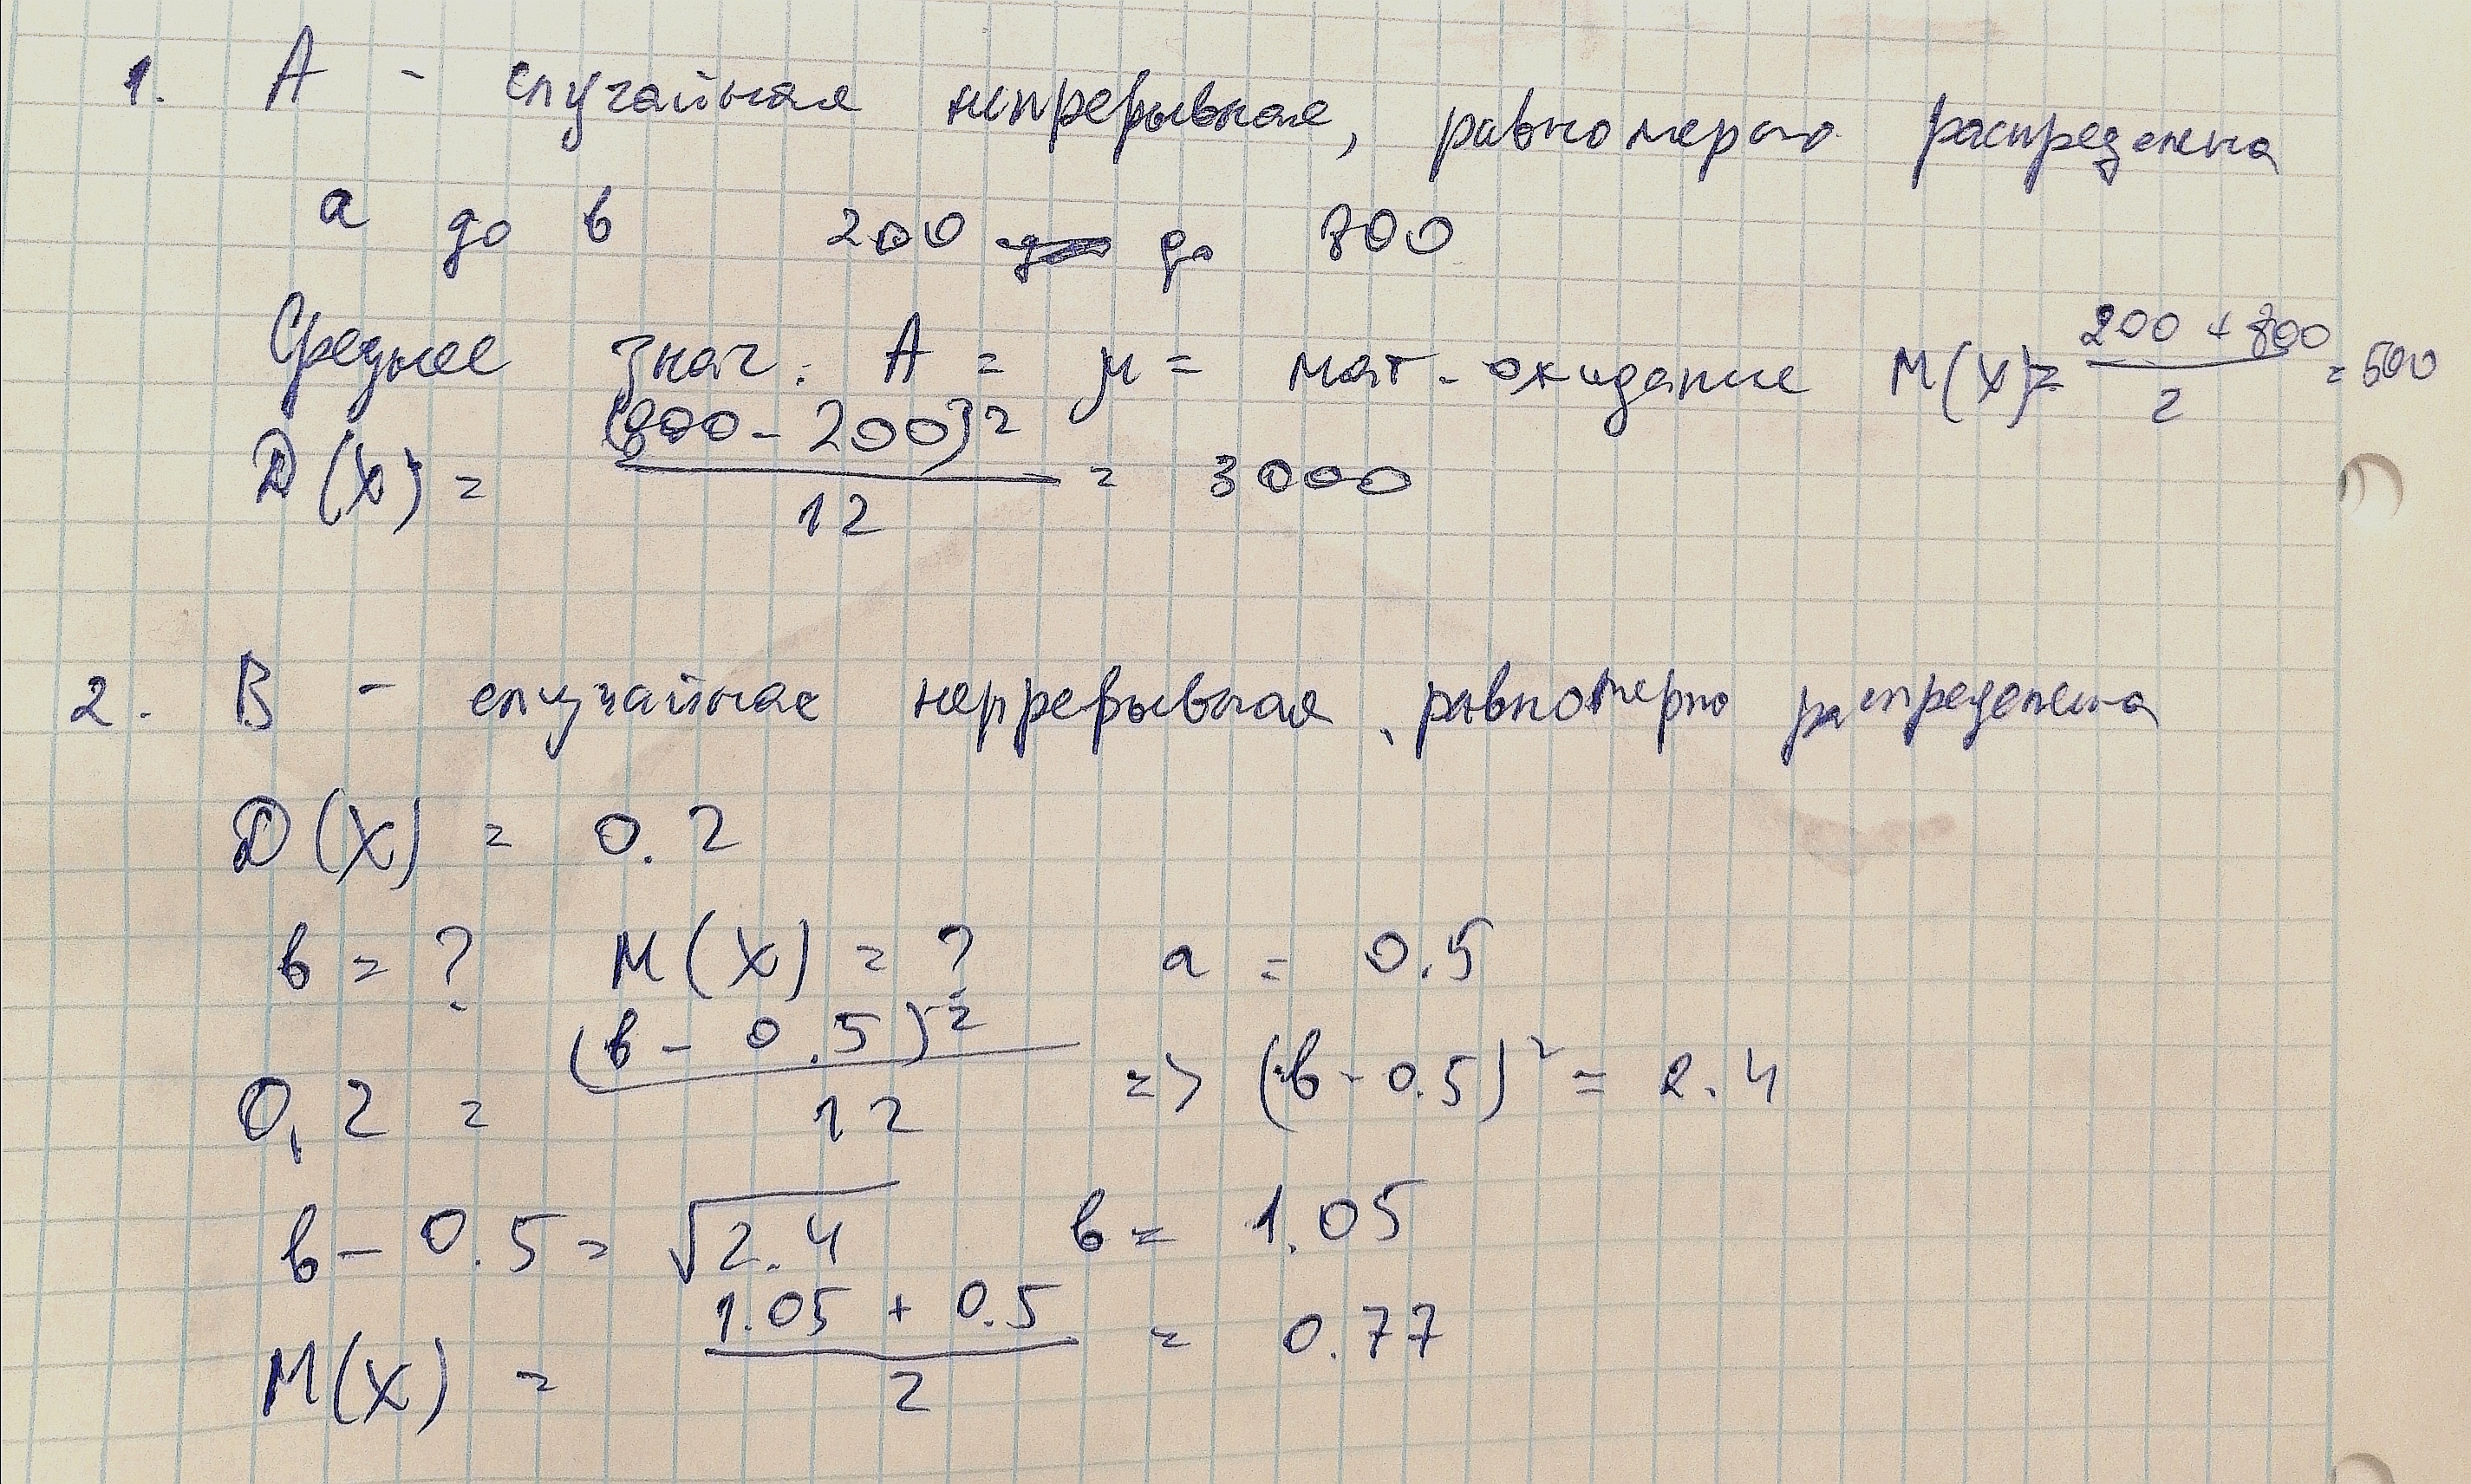 1. А - случайная непрерывная, равномерно распределена
а до в 200 до 800
Среднее знач. А = μ = мат. ожидание М(Х) = (200 + 800) / 2 = 500
D(X) = (800 - 200)² / 12 = 3000
2. В - случайная непрерывная, равномерно распределена
D(X) = 0.2
в = ? М(Х) = ? а = 0.5
0,2 = (в - 0.5)² / 12 => (в - 0.5)² = 2.4
в - 0.5 = √2.4 в = 1.05
М(Х) = (1.05 + 0.5) / 2 = 0.77